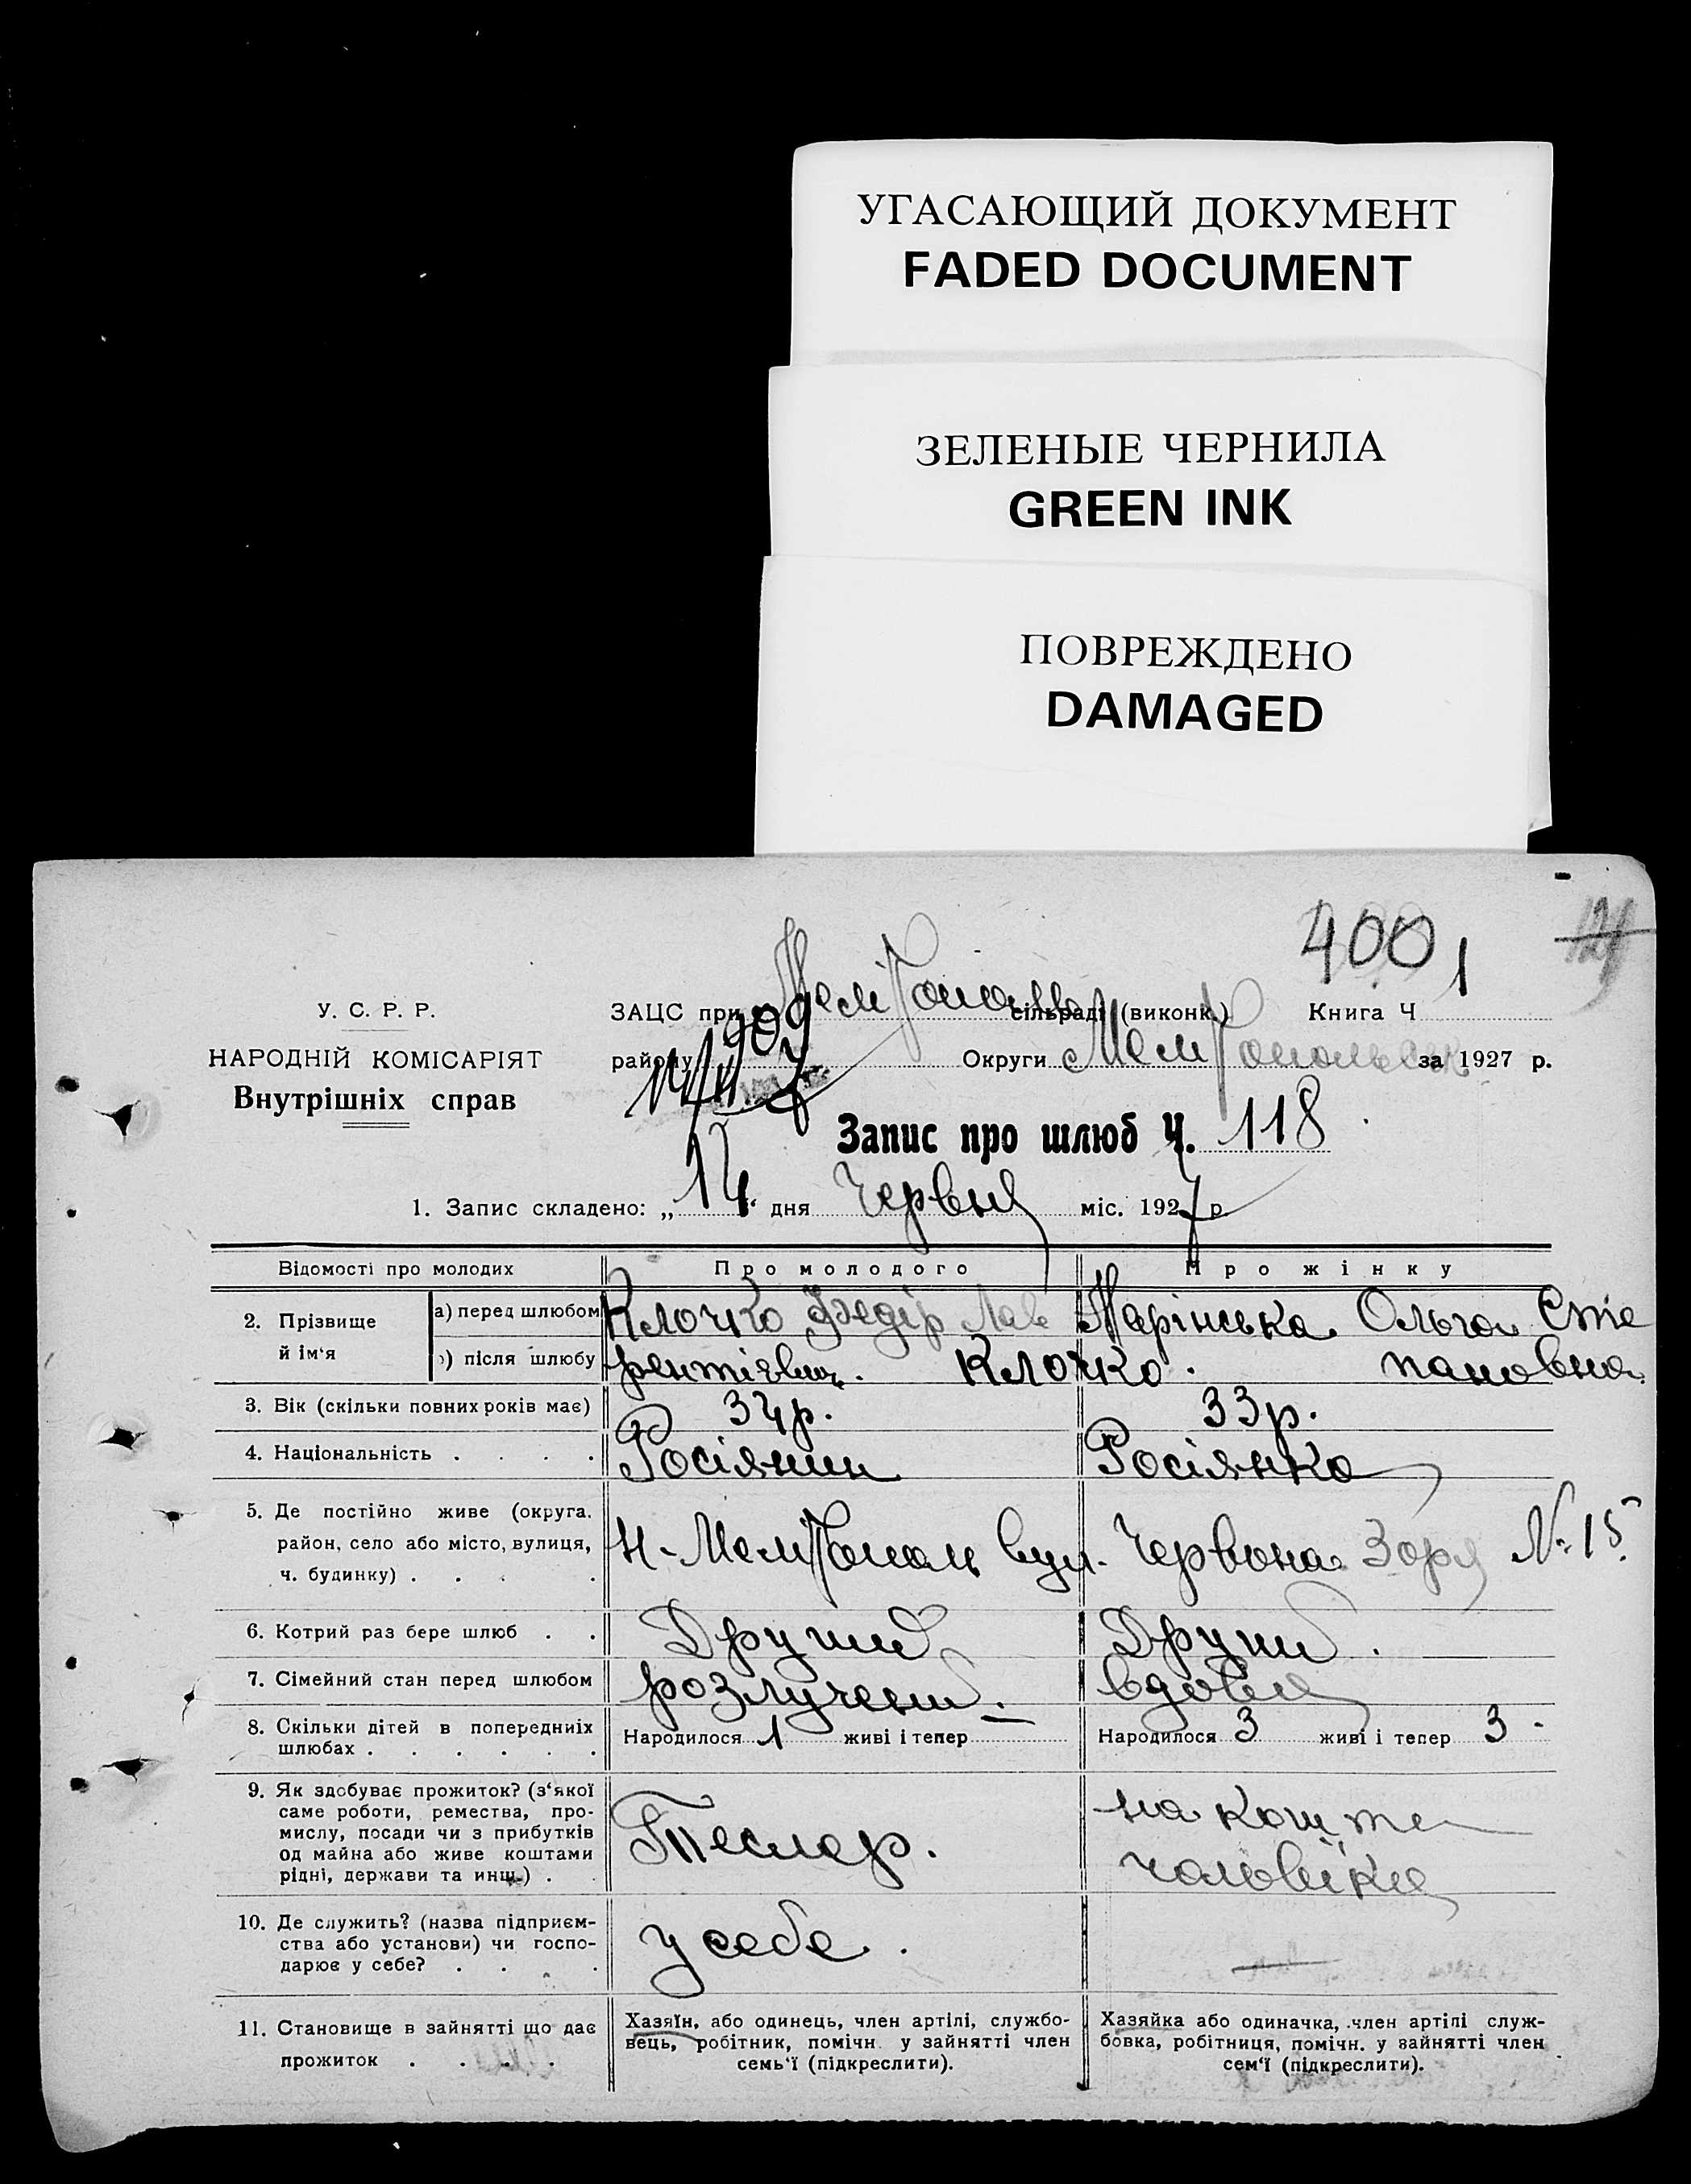 УГАСАЮЩИЙ ДОКУМЕНТ
FADED DOCUMENT
ЗЕЛЕНЫЕ ЧЕРНИЛА
GREEN INK
ПОВРЕЖДЕНО
DAMAGED
400
У. С. Р. Р.
ЗАЦС при сільраді (виконк.) Книга Ч 1
909
НАРОДНІЙ КОМІСАРІЯТ
Внутрішніх справ
району Округи за 1927 р.
Запис про шлюб Ч. 118
1. Запис складено: „14“ дня Червня міс. 1927 р.
Відомості про молодих
Про молодого
Про жінку
2. Прізвище й ім'я
а) перед шлюбом
Клочко Федір Лав
Марінська Ольга Сте
) після шлюбу
рентієвич. Клочко. пановна
3. Вік (скільки повних років має)
34р.
33р.
4. Національність . . . .
Росіянин
Росіянка
5. Де постійно живе (округа,
район, село або місто, вулиця,
ч. будинку) . . . .
Н-Мелітополь вул. Червона Зоря № 15
6. Котрий раз бере шлюб . .
Другий
Другий.
7. Сімейний стан перед шлюбом
розлучений.
вдова
8. Скільки дітей в попередниіх
шлюбах . . . . . .
Народилося 1 живі і тепер
Народилося 3 живі і тепер 3 -
9. Як здобуває прожиток? (з'якої
саме роботи, ремества, про-
мислу, посади чи з прибутків
од майна або живе коштами
рідні, держави та инш.) .
Тесляр.
на кошти
чоловіка
10. Де служить? (назва підприєм-
ства або установи) чи госпо-
дарює у себе? . . . .
у себе.
11. Становище в зайнятті що дає
прожиток . . . .
Хазяїн, або одинець, член артілі, службо-
вець, робітник, помічн. у зайнятті член
семь'ї (підкреслити).
Хазяйка або одиначка, член артілі служ-
бовка, робітниця, помічн. у зайнятті член
сем'ї (підкреслити).